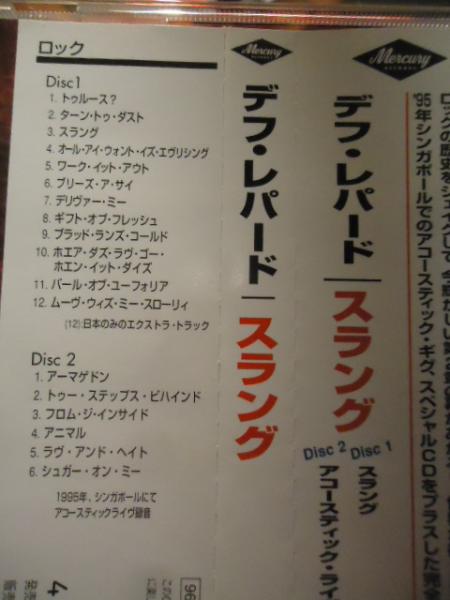 ロック
Disc1
1. トゥルース?
2. ターン・トゥ・ダスト
3. スラング
4. オール・アイ・ウォント・イズ・エヴリシング
5. ワーク・イット・アウト
6. ブリーズ・ア・サイ
7. デリヴァー・ミー
8. ギフト・オブ・フレッシュ
9. ブラッド・ランズ・コールド
10. ホエア・ダズ・ラヴ・ゴー・
ホエン・イット・ダイズ
11. パール・オブ・ユーフォリア
12. ムーヴ・ウィズ・ミー・スローリィ
(12):日本のみのエクストラ・トラック
Disc 2
1. アーマゲドン
2. トゥー・ステップス・ビハインド
3. フロム・ジ・インサイド
4. アニマル
5. ラヴ・アンド・ヘイト
6. シュガー・オン・ミー
1995年、シンガポールにて
アコースティックライヴ録音
Mercury
デフ・レパード|スラング
Mercury
デフ・レパード|スラング
Disc 1 スラング
Disc 2 アコースティック・ライ
'95年シンガポールでのアコースティック・ギグ、スペシャルCDをプラスした完全
96
4